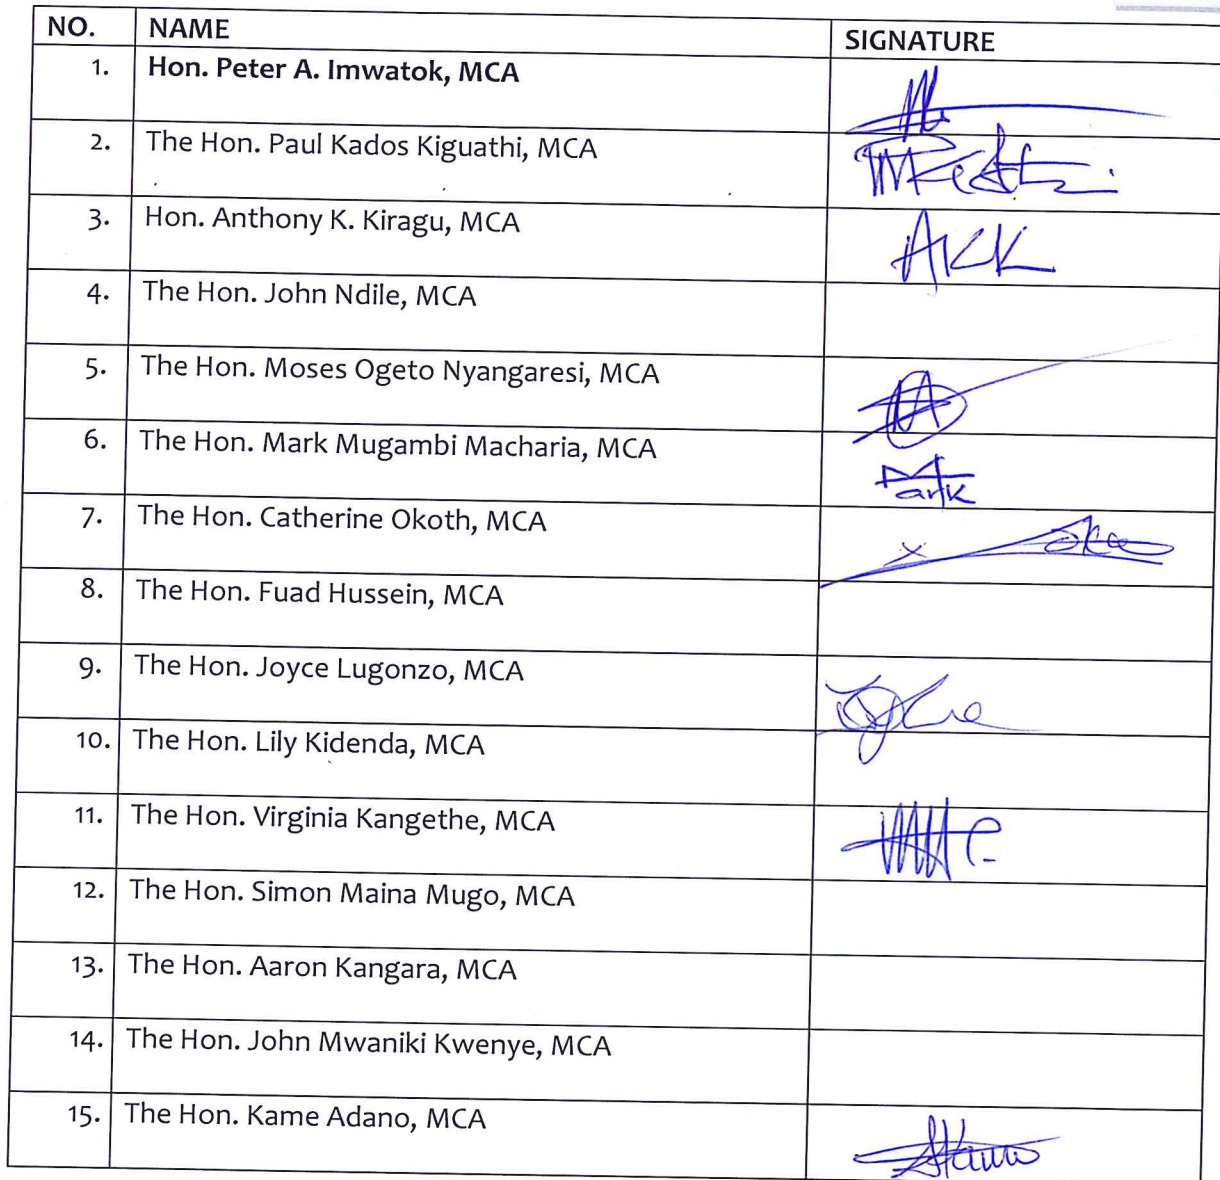 NO. NAME SIGNATURE
1. Hon. Peter A. Imwatok, MCA
2. The Hon. Paul Kados Kiguathi, MCA
3. Hon. Anthony K. Kiragu, MCA AKK
4. The Hon. John Ndile, MCA
5. The Hon. Moses Ogeto Nyangaresi, MCA
6. The Hon. Mark Mugambi Macharia, MCA Mark
7. The Hon. Catherine Okoth, MCA
8. The Hon. Fuad Hussein, MCA
9. The Hon. Joyce Lugonzo, MCA
10. The Hon. Lily Kidenda, MCA
11. The Hon. Virginia Kangethe, MCA
12. The Hon. Simon Maina Mugo, MCA
13. The Hon. Aaron Kangara, MCA
14. The Hon. John Mwaniki Kwenye, MCA
15. The Hon. Kame Adano, MCA